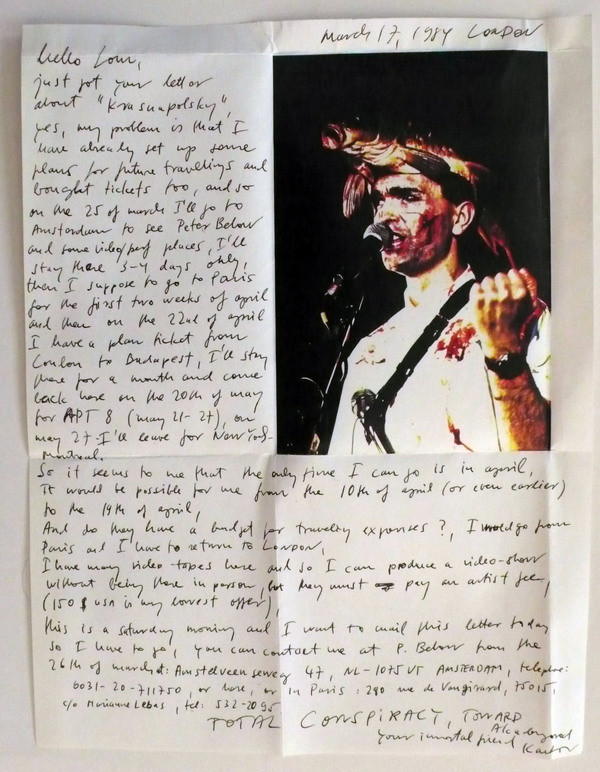 March 17, 1984 LONDON
Hello Lour,
just got your letter
about "Krasnapolsky",
yes, my problem is that I
have already set up some
plans for future travellings and
bought tickets too, and so
on the 25 of march I'll go to
Amsterdam to see Peter Below
and some video/perf places, I'll
stay there 3-4 days only,
then I suppose to go to Paris
for the first two weeks of april
and then on the 22nd of april
I have a plan ticket from
London to Budapest, I'll stay
there for a month and come
back here on the 20th of may
for APT 8 (may 21-27), on
may 27 I'll leave for New York-
Montreal.
So it seems to me that the only time I can go is in april,
It would be possible for me from the 10th of april (or even earlier)
to the 19th of april,
And do they have a budget for traveling expenses?, I would go from
Paris and I have to return to London,
I have many video-tapes here and so I can produce a video-show
without being there in person, but they must pay an artist fee,
(150 $ usa is my lowest offer),
this is a saturday morning and I want to mail this letter today
so I have to go, you can contact me at P. Below from the
26th of march at: Amstelveenseweg 47, NL-1075 VT AMSTERDAM, telephone:
0031-20-711750, or here, or in Paris: 290 rue de Vaugirard, 75015,
c/o Marianne Lebas, tel: 532-2095
TOTAL CONSPIRACY, TOWARD
your immortal friend
Kantor